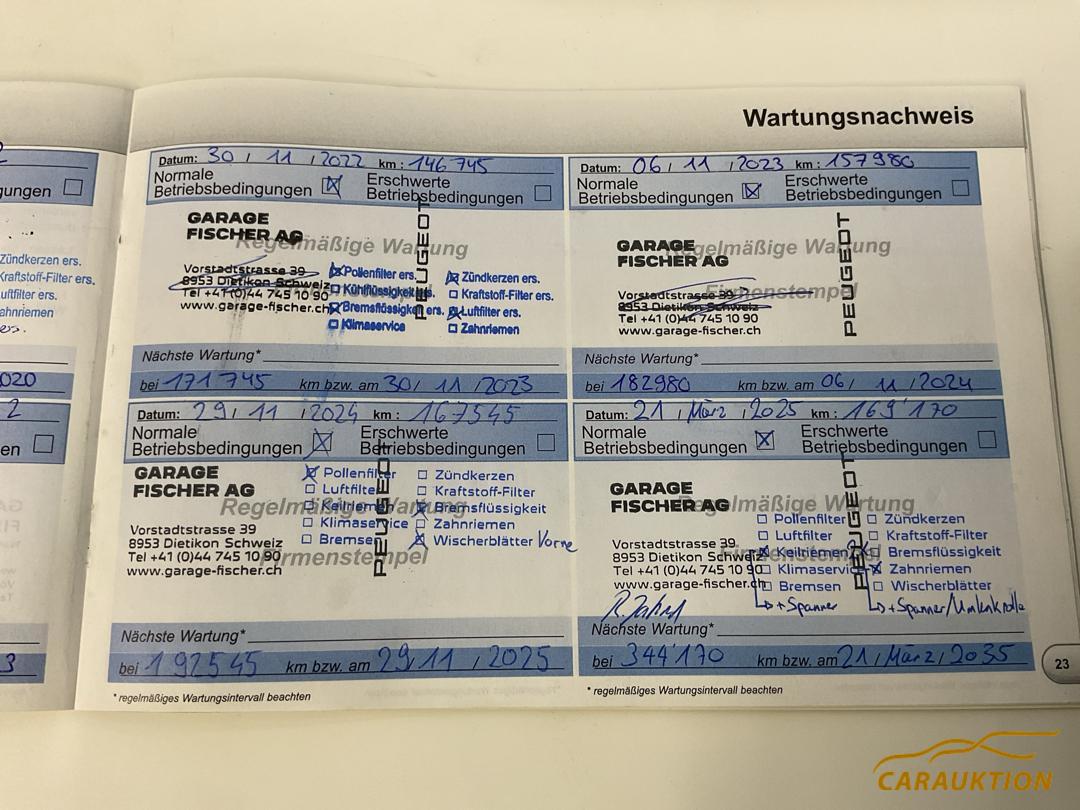 Wartungsnachweis
Datum: 30 / 11 / 2022 km : 146 745
Normale Betriebsbedingungen ☒ Erschwerte Betriebsbedingungen ☐
GARAGE
FISCHER AG
PEUGEOT
Regelmäßige Wartung
Vorstadtstrasse 39
8953 Dietikon Schweiz
Tel +41 (0)44 745 10 90
www.garage-fischer.ch
Firmenstempel
☒ Pollenfilter ers. ☒ Zündkerzen ers.
☐ Kühlflüssigkeit ers. ☐ Kraftstoff-Filter ers.
☒ Bremsflüssigkeit ers. ☒ Luftfilter ers.
☐ Klimaservice ☐ Zahnriemen
Nächste Wartung*
bei 171 745 km bzw. am 30 / 11 / 2023
Datum: 06 / 11 / 2023 km : 157980
Normale Betriebsbedingungen ☒ Erschwerte Betriebsbedingungen ☐
GARAGE
FISCHER AG
PEUGEOT
Regelmäßige Wartung
Vorstadtstrasse 39
8953 Dietikon Schweiz
Tel +41 (0)44 745 10 90
www.garage-fischer.ch
Firmenstempel
Nächste Wartung*
bei 182980 km bzw. am 06 / 11 / 2024
Datum: 29 / 11 / 2024 km : 167545
Normale Betriebsbedingungen ☒ Erschwerte Betriebsbedingungen ☐
GARAGE
FISCHER AG
PEUGEOT
Regelmäßige Wartung
Vorstadtstrasse 39
8953 Dietikon Schweiz
Tel +41 (0)44 745 10 90
www.garage-fischer.ch
Firmenstempel
☒ Pollenfilter ☐ Zündkerzen
☐ Luftfilter ☐ Kraftstoff-Filter
☐ Keilriemen ☒ Bremsflüssigkeit
☐ Klimaservice ☐ Zahnriemen
☐ Bremsen ☒ Wischerblätter Vorne
Nächste Wartung*
bei 192545 km bzw. am 29 / 11 / 2025
* regelmäßiges Wartungsintervall beachten
Datum: 21 / März / 2025 km : 169'170
Normale Betriebsbedingungen ☒ Erschwerte Betriebsbedingungen ☐
GARAGE
FISCHER AG
PEUGEOT
Regelmäßige Wartung
Vorstadtstrasse 39
8953 Dietikon Schweiz
Tel +41 (0)44 745 10 90
www.garage-fischer.ch
Firmenstempel
☐ Pollenfilter ☐ Zündkerzen
☐ Luftfilter ☐ Kraftstoff-Filter
☒ Keilriemen ☒ Bremsflüssigkeit
☐ Klimaservice ☒ Zahnriemen
☐ Bremsen ☐ Wischerblätter
+ Spanner + Spanner/Umlenkrolle
Nächste Wartung*
bei 344'170 km bzw. am 21 / März / 2035
* regelmäßiges Wartungsintervall beachten
23
gungen ☐
Zündkerzen ers.
Kraftstoff-Filter ers.
Luftfilter ers.
Zahnriemen
ers.
020
2
en ☐
3
CARAUKTION